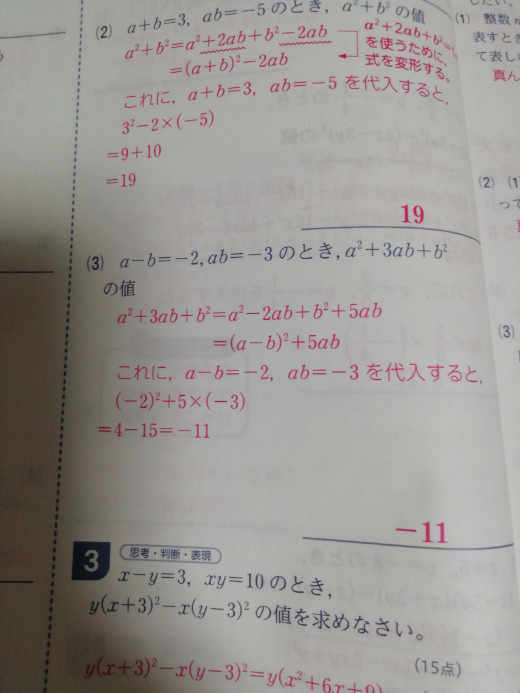 (2) a+b=3, ab=-5のとき, a²+b²の値
a²+b²=a²+2ab+b²-2ab
=(a+b)²-2ab
a²+2ab+b²=
を使うために,
式を変形する。
これに, a+b=3, ab=-5 を代入すると,
3²-2×(-5)
=9+10
=19
19
(3) a-b=-2, ab=-3のとき, a²+3ab+b²
の値
a²+3ab+b²=a²-2ab+b²+5ab
=(a-b)²+5ab
これに, a-b=-2, ab=-3 を代入すると,
(-2)²+5×(-3)
=4-15=-11
-11
3 思考・判断・表現
x-y=3, xy=10のとき,
y(x+3)²-x(y-3)²の値を求めなさい。
(15点)
y(x+3)²-x(y-3)²=y(x²+6x+9)
(1) 整数
表すとき
て表し
真ん
(2) (1)
って
(3)